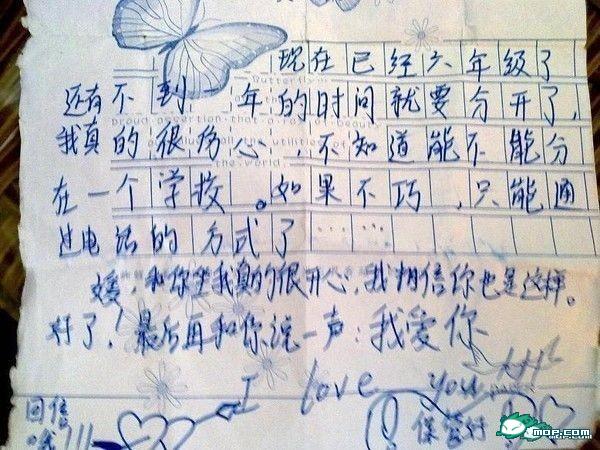 现在已经六年级了
还有不到一年的时间就要分开了,
我真的很伤心,不知道能不能分
在一个学校。如果不巧,只能通
过电话的方式了……
媛,和你坐我真的很开心,我相信你也是这样。
好了!最后再和你说一声:我爱你
I love you
回信
哦!!!
保管好
MOP.COM